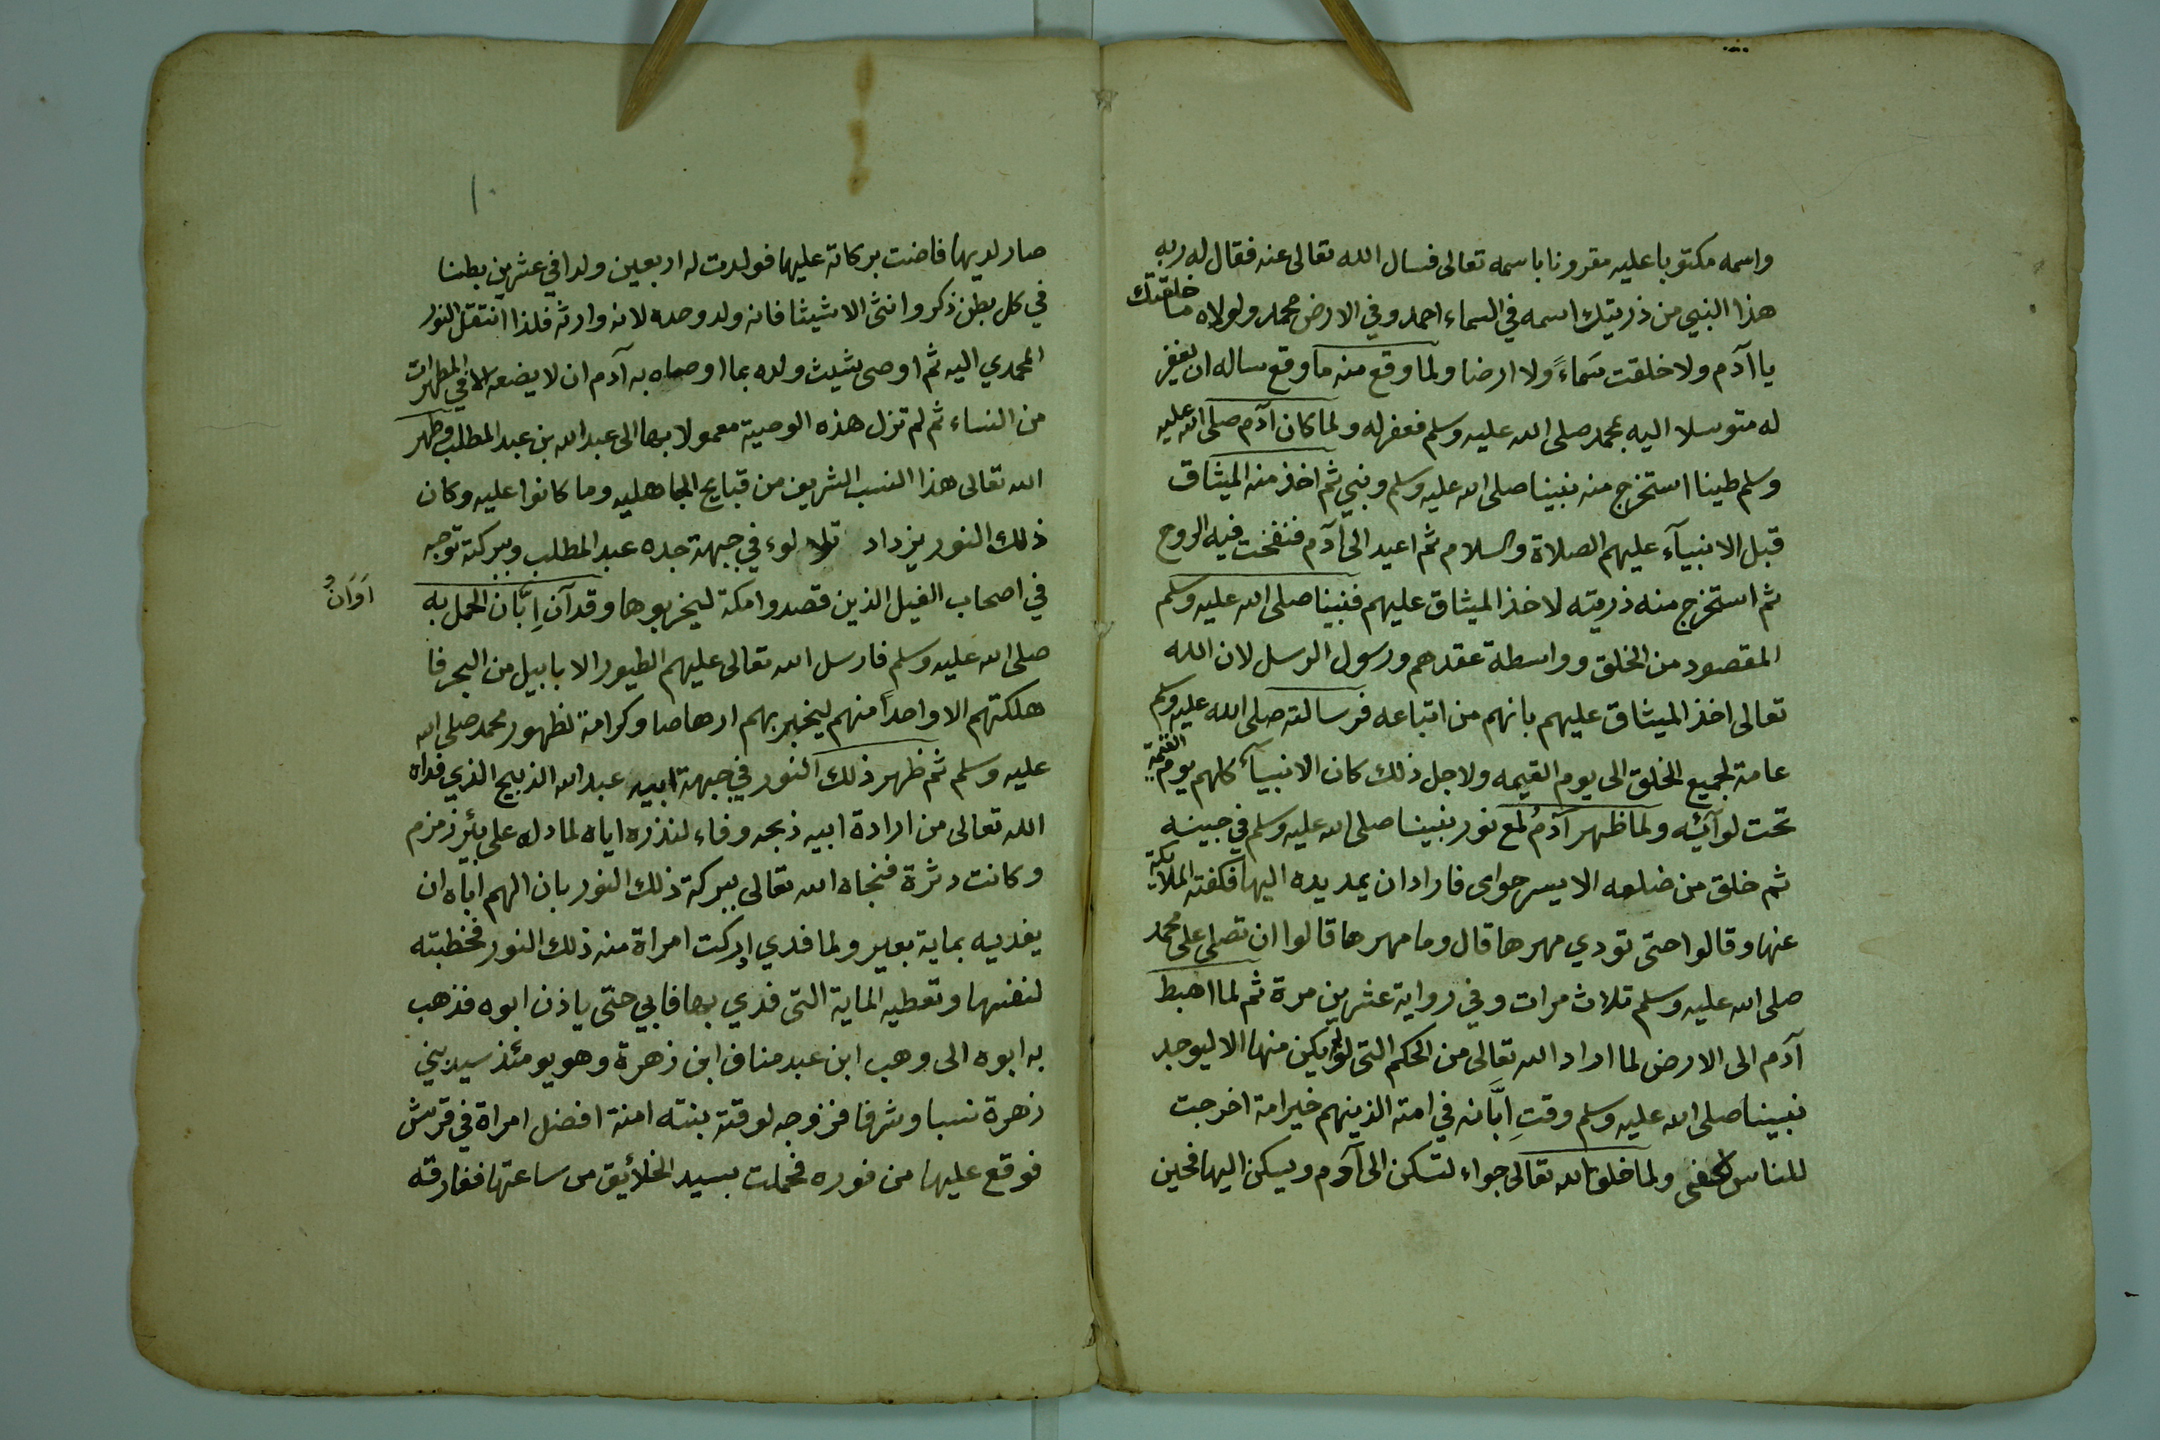 واسمه مكتوبا عليه مقرونا باسمه تعالى فسال الله تعالى عنه فقال له ربه
هذا النبي من ذريتك اسمه في السماء احمد وفي الارض محمد ولولاه ما خلقتك
يا آدم ولا خلقت سَماءً ولا ارضا ولما وقع منه ما وقع ساله ان يغفر
له متوسلا اليه بمحمد صلى الله عليه وسلم فغفر له ولما كان آدم صلى الله عليه
وسلم طينا استخرج منه نبينا صلى الله عليه وسلم ونبي ثم اخذ منه الميثاق
قبل الانبيآء عليهم الصلاة والسلام ثم اعيد الى آدم فنفخت فيه الروح
ثم استخرج منه ذريته لاخذ الميثاق عليهم فنبينا صلى الله عليه وسلم
المقصود من الخلق وواسطة عقدهم ورسول الرسل لان الله
تعالى اخذ الميثاق عليهم بانهم من اتباعه فرسالته صلى الله عليه وسلم
عامة لجميع الخلق الى يوم القيمه ولاجل ذلك كان الانبيآء كلهم يوم القيمة
تحت لوآئه ولما ظهر آدمُ لمع نور نبينا صلى الله عليه وسلم في جبينه
ثم خلق من ضلعه الايسر حواى فاراد ان يمد يده اليها فكفته الملائكة
عنها وقالوا حتى تودي مهرها قال وما مهرها قالوا ان تصلي على محمد
صلى الله عليه وسلم ثلاث مرات وفي رواية عشرين مرة ثم لما اهبط
آدم الى الارض لما اراد الله تعالى من الحكم التى لو لم يكن منها الا ليوجد
نبينا صلى الله عليه وسلم وقتِ اِبَّانه في امته الذين هم خير امة اخرجت
للناس لكفى ولما خلق الله تعالى حواء لتسكن الى آدم ويسكن اليها فحين
١٠
صار لديها فاضت بركاته عليها فولدت له اربعين ولدا في عشرين بطنا
في كل بطن ذكر وانثى الا شيثا فانه ولد وحده لانه وارثه فلذا انتقل النور
المحمدي اليه ثم اوصى شيث ولده بما اوصاه به آدم ان لا يضعه الا في المطهرات
من النساء ثم لم تزل هذه الوصية معمولا بها الى عبد الله بن عبد المطلب وطهر
الله تعالى هذا النسب الشريف من قبايح الجاهليه وما كانوا عليه وكان
ذلك النور يزداد لوء في جبهة جده عبد المطلب وببركته توجه
في اصحاب الفيل الذين قصدوا مكة ليخربوها وقد آن اِبَّان الحمل به
اَوَانُ
صلى الله عليه وسلم فارسل الله تعالى عليهم الطيور الابابيل من البحر فا
هلكتهم الا واحداً منهم ليخبر بهم ارهاصا وكرامة لظهور محمد صلى الله
عليه وسلم ثم ظهر ذلك النور في جبهة ابيه عبد الله الذبيح الذي فداه
الله تعالى من ارادة ابيه ذبحه وفاء لنذره اياه لما دله على بئر زمزم
وكانت دثرة فنجاه الله تعالى ببركة ذلك النور بان الهم اباه ان
يفديه بماية بعير ولما فدي ادركت امراة منه ذلك النور فخطبته
لنفسها وتعطيه الماية التى فدي بها فابي حتى ياذن ابوه فذهب
به ابوه الى وهب ابن عبد مناف ابن زهرة وهو يومئذ سيد بني
زهرة نسبا وشرفا فزوجه لوقته بنته امنة افضل امراة في قريش
فوقع عليها من فوره فحملت بسيد الخلائق من ساعتها ففارقته